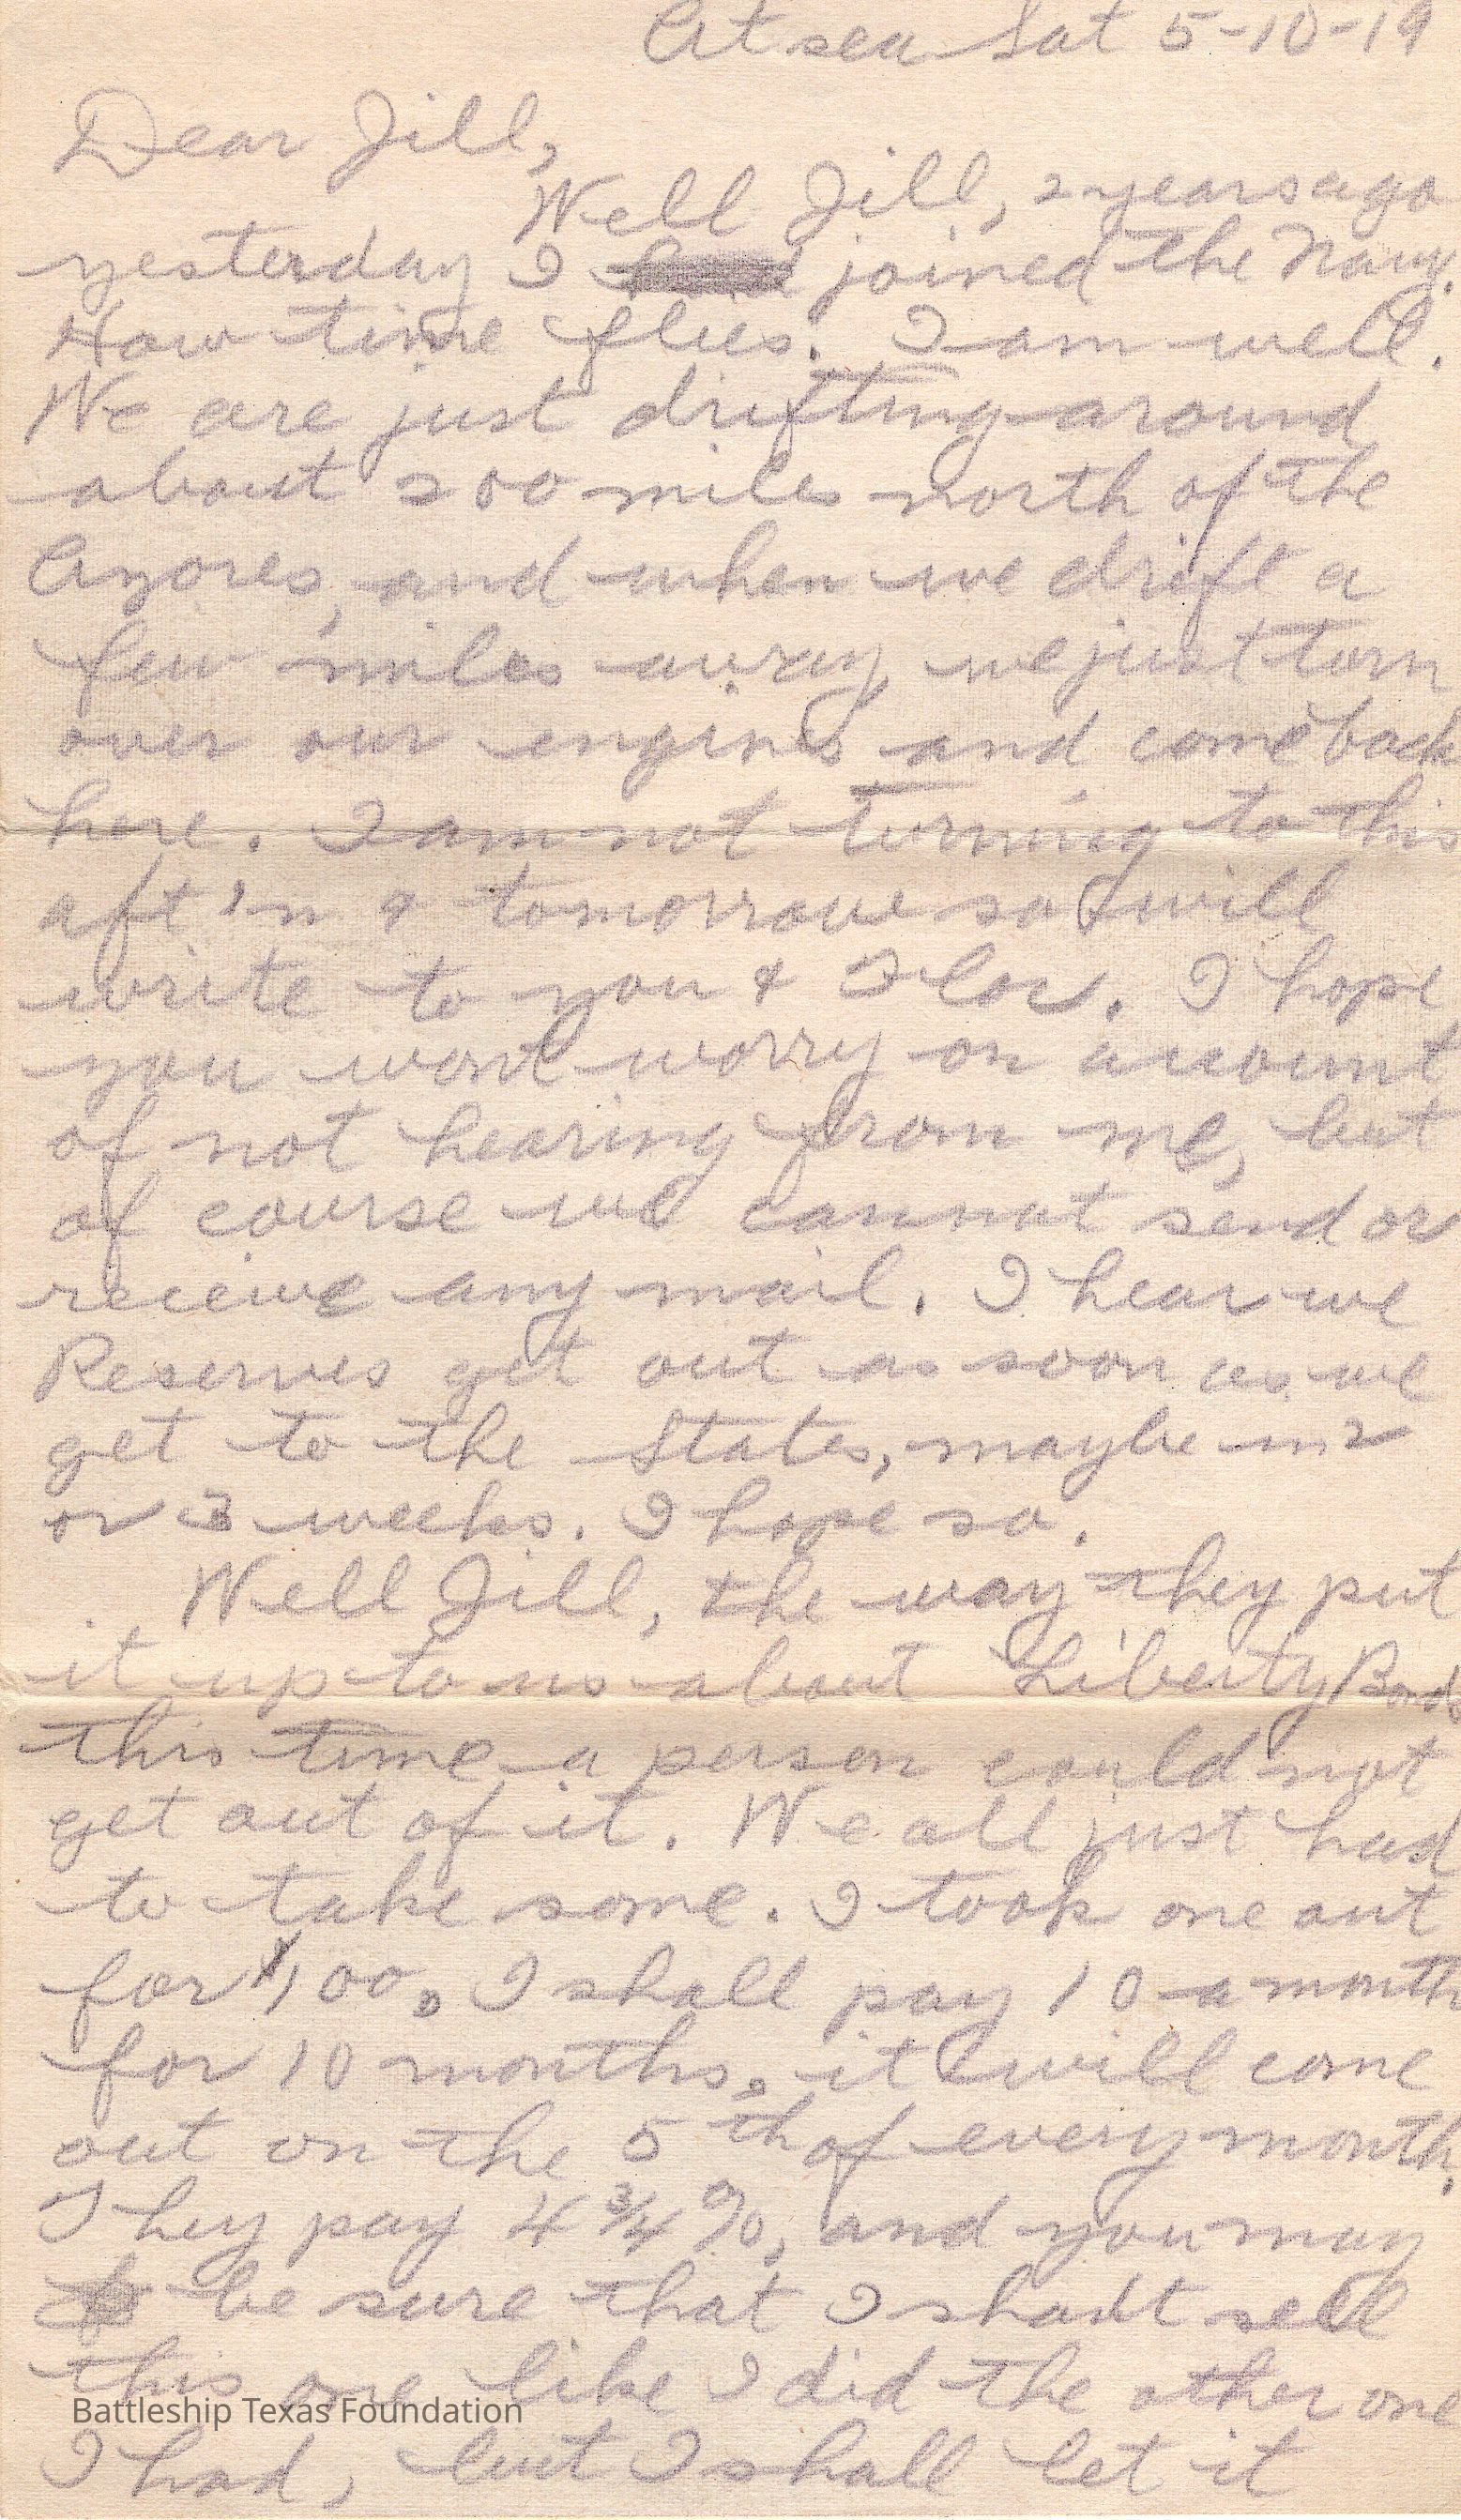 At sea Sat 5-10-19
Dear Jill,
Well Jill, 2 years ago
yesterday I joined the Navy.
How time flies. I am well.
We are just drifting around
about 200 miles north of the
Azores, and when we drift a
few miles away we just turn
over our engines and come back
here. I am not turning to this
aft'n & tomorrow so I will
write to you & Flor. I hope
you wont worry on account
of not hearing from me, but
of course we cannot send or
receive any mail. I hear we
Reserves get out as soon as we
get to the States, maybe in 2
or 3 weeks. I hope so.
Well Jill, the way they put
it up to us about Liberty Bonds
this time a person could not
get out of it. We all just had
to take some. I took one out
for $100. I shall pay 10 a month
for 10 months, it will come
out on the 5th of every month.
They pay 4 3/4 %, and you may
be sure that I shan't sell
this one like I did the other one
Battleship Texas Foundation
I had, but I shall let it